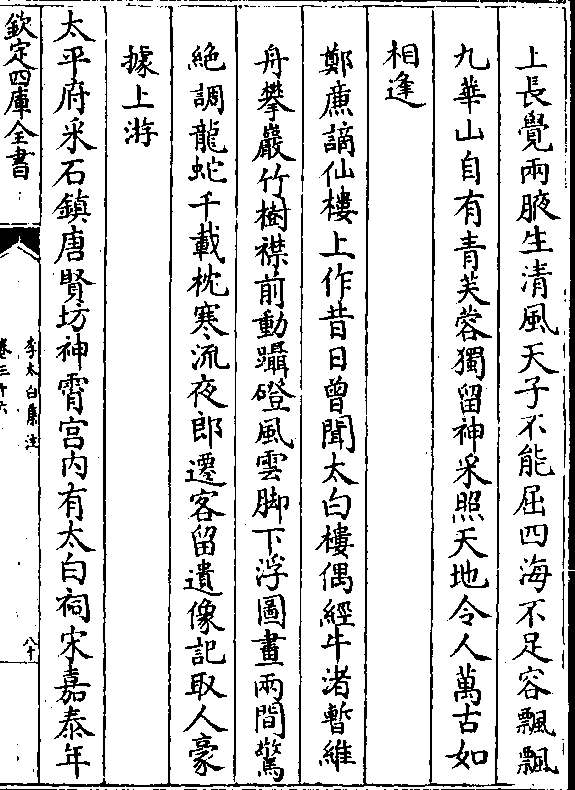 上長覺兩腋生清風天子不能屈四海不足容飄飄
九華山自有青芙蓉獨留神采照天地令人萬古如
相逢
鄭廌謫仙樓上作昔日曾聞太白樓偶經牛渚暫維
舟攀巖竹樹襟前動躡磴風雲脚下浮圖畫兩間驚
絶調龍蛇千載枕寒流夜郎遷客留遺像記取人豪
據上游
太平府采石鎮唐賢坊神霄宫内有太白祠宋嘉泰年
欽定四庫全書
李太白集注
卷三十六
八十